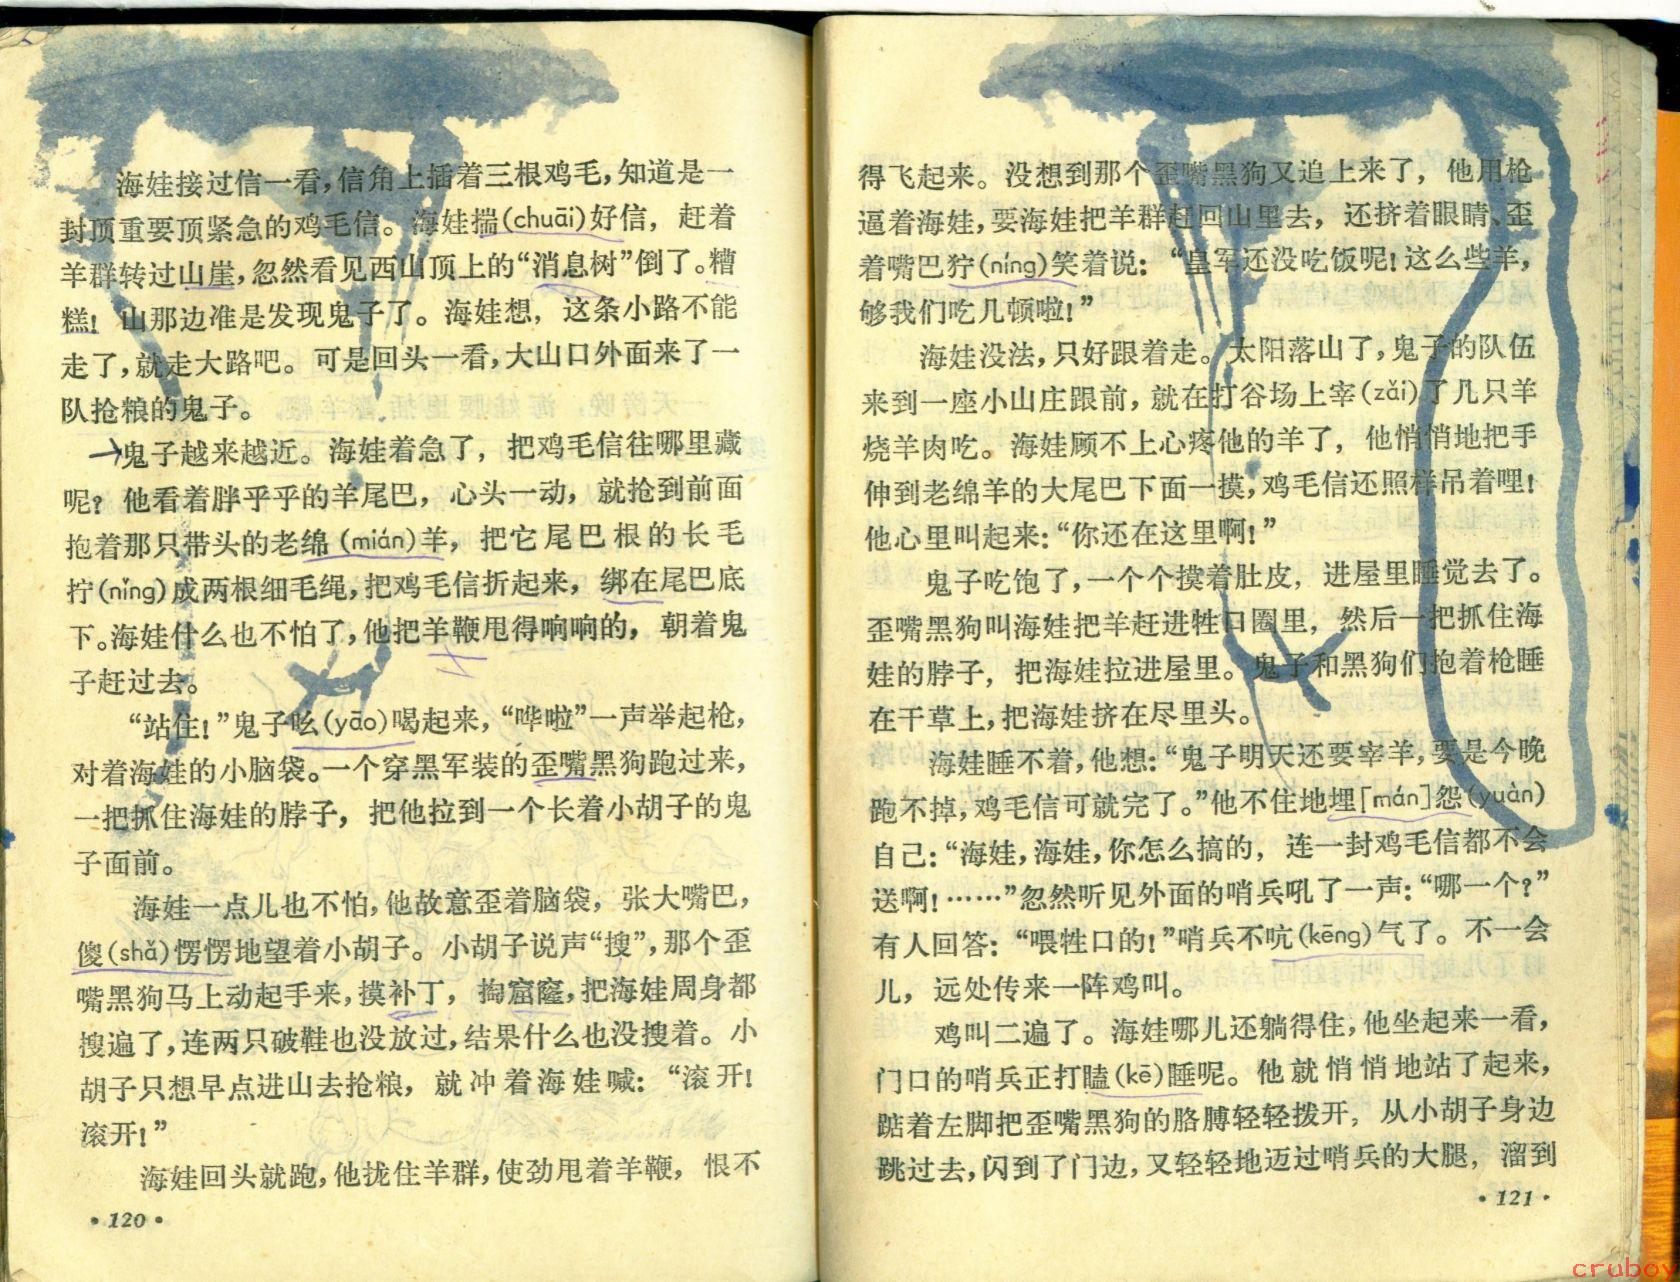 海娃接过信一看，信角上插着三根鸡毛，知道是一
封顶重要顶紧急的鸡毛信。海娃揣(chuāi)好信，赶着
羊群转过山崖，忽然看见西山顶上的“消息树”倒了。糟
糕！山那边准是发现鬼子了。海娃想，这条小路不能
走了，就走大路吧。可是回头一看，大山口外面来了一
队抢粮的鬼子。
鬼子越来越近。海娃着急了，把鸡毛信往哪里藏
呢？他看着胖乎乎的羊尾巴，心头一动，就抢到前面
抱着那只带头的老绵(mián)羊，把它尾巴根的长毛
拧(nǐng)成两根细毛绳，把鸡毛信折起来，绑在尾巴底
下。海娃什么也不怕了，他把羊鞭甩得响响的，朝着鬼
子赶过去。
“站住！”鬼子吆(yāo)喝起来，“哗啦”一声举起枪，
对着海娃的小脑袋。一个穿黑军装的歪嘴黑狗跑过来，
一把抓住海娃的脖子，把他拉到一个长着小胡子的鬼
子面前。
海娃一点儿也不怕，他故意歪着脑袋，张大嘴巴，
傻(shǎ)愣愣地望着小胡子。小胡子说声“搜”，那个歪
嘴黑狗马上动起手来，摸补丁，掏窟窿，把海娃周身都
搜遍了，连两只破鞋也没放过，结果什么也没搜着。小
胡子只想早点进山去抢粮，就冲着海娃喊：“滚开！
滚开！”
海娃回头就跑，他拢住羊群，使劲甩着羊鞭，恨不
·120·
得飞起来。没想到那个歪嘴黑狗又追上来了，他用枪
逼着海娃，要海娃把羊群赶回山里去，还挤着眼睛、歪
着嘴巴狞(níng)笑着说：“皇军还没吃饭呢！这么些羊，
够我们吃几顿啦！”
海娃没法，只好跟着走。太阳落山了，鬼子的队伍
来到一座小山庄跟前，就在打谷场上宰(zǎi)了几只羊
烧羊肉吃。海娃顾不上心疼他的羊了，他悄悄地把手
伸到老绵羊的大尾巴下面一摸，鸡毛信还照样吊着哩！
他心里叫起来：“你还在这里啊！”
鬼子吃饱了，一个个摸着肚皮，进屋里睡觉去了。
歪嘴黑狗叫海娃把羊赶进牲口圈里，然后一把抓住海
娃的脖子，把海娃拉进屋里。鬼子和黑狗们抱着枪睡
在干草上，把海娃挤在尽里头。
海娃睡不着，他想：“鬼子明天还要宰羊，要是今晚
跑不掉，鸡毛信可就完了。”他不住地埋[mán]怨(yuàn)
自己：“海娃，海娃，你怎么搞的，连一封鸡毛信都不会
送啊！……”忽然听见外面的哨兵吼了一声：“哪一个？”
有人回答：“喂牲口的！”哨兵不吭(kēng)气了。不一会
儿，远处传来一阵鸡叫。
鸡叫二遍了。海娃哪儿还躺得住，他坐起来一看，
门口的哨兵正打瞌(kē)睡呢。他就悄悄地站了起来，
踮着左脚把歪嘴黑狗的胳膊轻轻拨开，从小胡子身边
跳过去，闪到了门边，又轻轻地迈过哨兵的大腿，溜到
·121·
cruboy